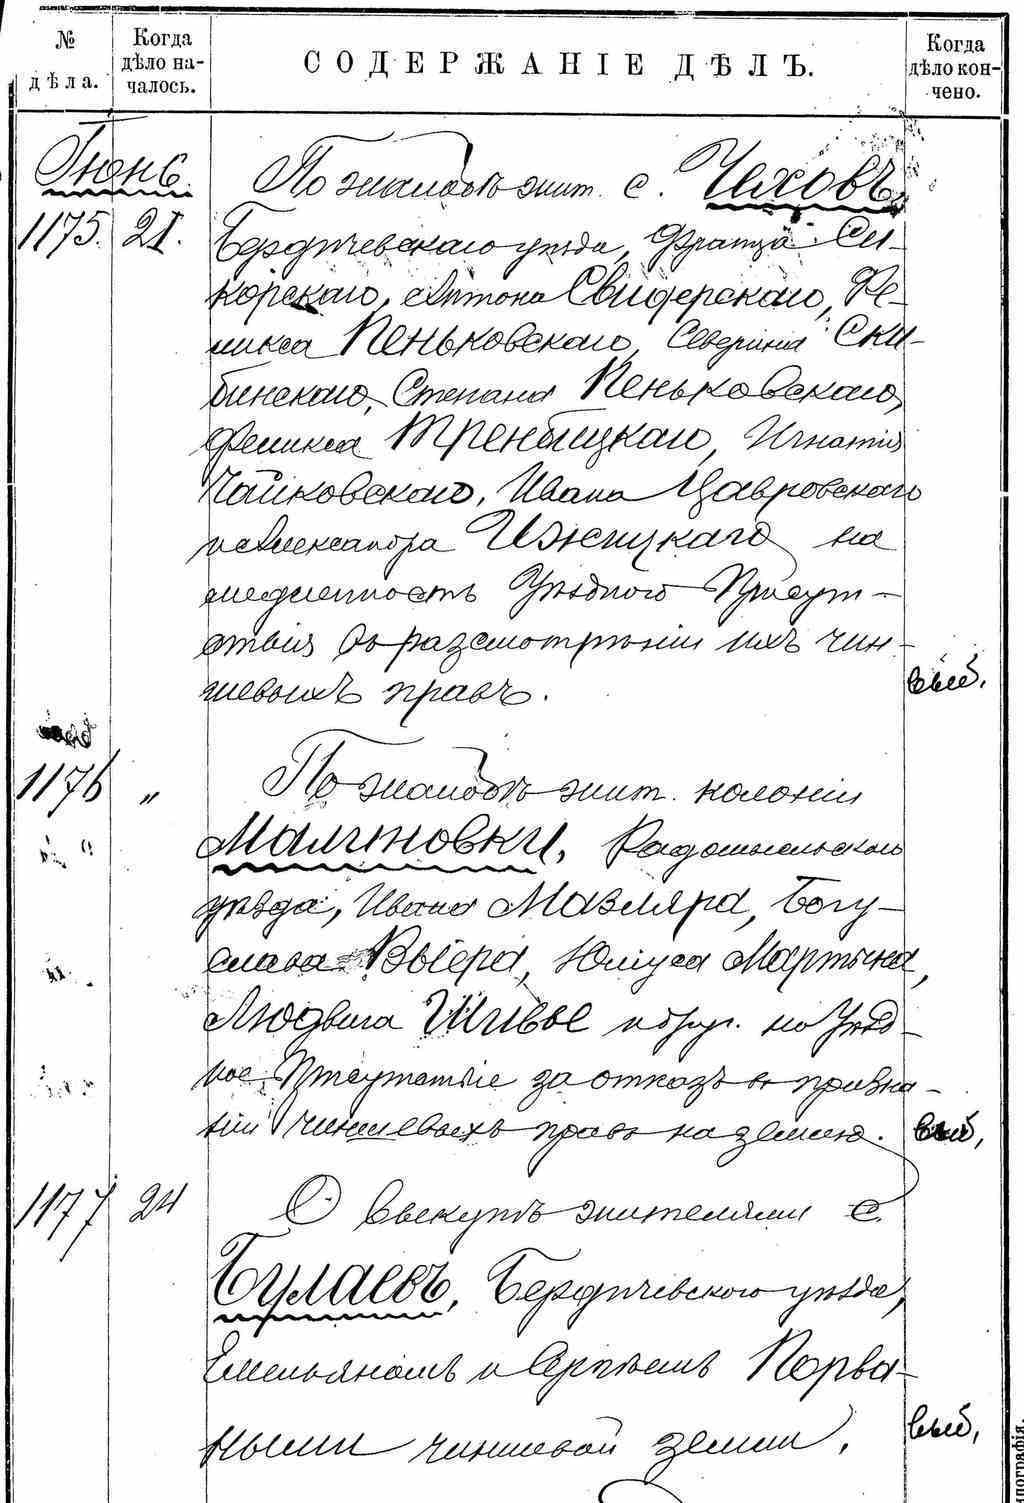 № дѣла.
Когда дѣло началось.
СОДЕРЖАНІЕ ДѢЛЪ.
Когда дѣло кончено.
Іюнь
По жалобѣ жит. с. Чеховъ,
1175. 21. Бердичевскаго уѣзда, Франца Си-
корскаго, Антона Свидерскаго, Фе-
ликса Пеньковскаго, Северина Ски-
бинскаго, Степана Пеньковскаго,
Феликса Тренбицкаго, Игнатія
Чайковскаго, Ивана Цавровскаго
и Александра Ижицкаго на
медленность Уѣзднаго Присут-
ствія въ разсмотрѣніи ихъ чин-
шевыхъ правъ.
1176 " По жалобѣ жит. колоніи
Малиновки, Радомысльскаго
уѣзда, Ивана Мазляра, Богу-
слава Выера, Юліуса Мартына,
Людвига Шивве и друг. на Уѣзд-
ное Присутствіе за отказъ въ призна-
ніи чиншевыхъ правъ на землю.
1177 24 О выкупѣ жителями с.
Булаевъ, Бердичевскаго уѣзда,
Емельяномъ и Сергѣемъ Порва-
ными чиншевой земли.